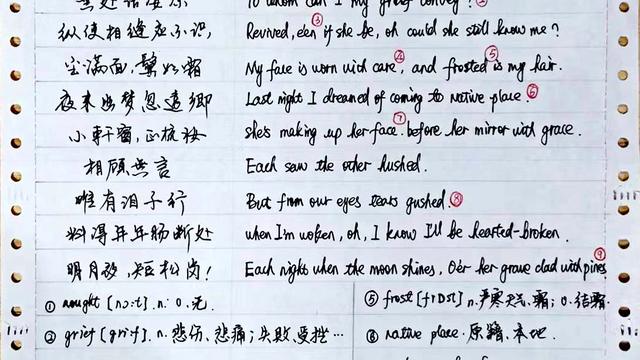 无处话凄凉 To whom can I my grief convey?
纵使相逢应不识, Revived, e'en if she be, oh could she still know me? ③
尘满面,鬓如霜 My face is worn with care, ④ and frosted ⑤ is my hair.
夜来幽梦忽还乡 Last night I dreamed of coming to native place. ⑥
小轩窗,正梳妆 she's making up her face ⑦ before her mirror with grace.
相顾无言 Each saw the other hushed.
唯有泪千行 But from our eyes tears gushed. ⑧
料得年年肠断处 when I'm woken, oh, I know I'll be hearted-broken.
明月夜,短松岗! Each night when the moon shines, O'er her grave clad with pines ⑨
① nought [nɔ:t]. n. 0. 无.
⑤ frost [frɒst] n. 严寒天气、霜; v. 结霜.
② grief [gri:f]. n. 悲伤、悲痛; 失败、受挫…
⑥ native place. 原籍、本地.